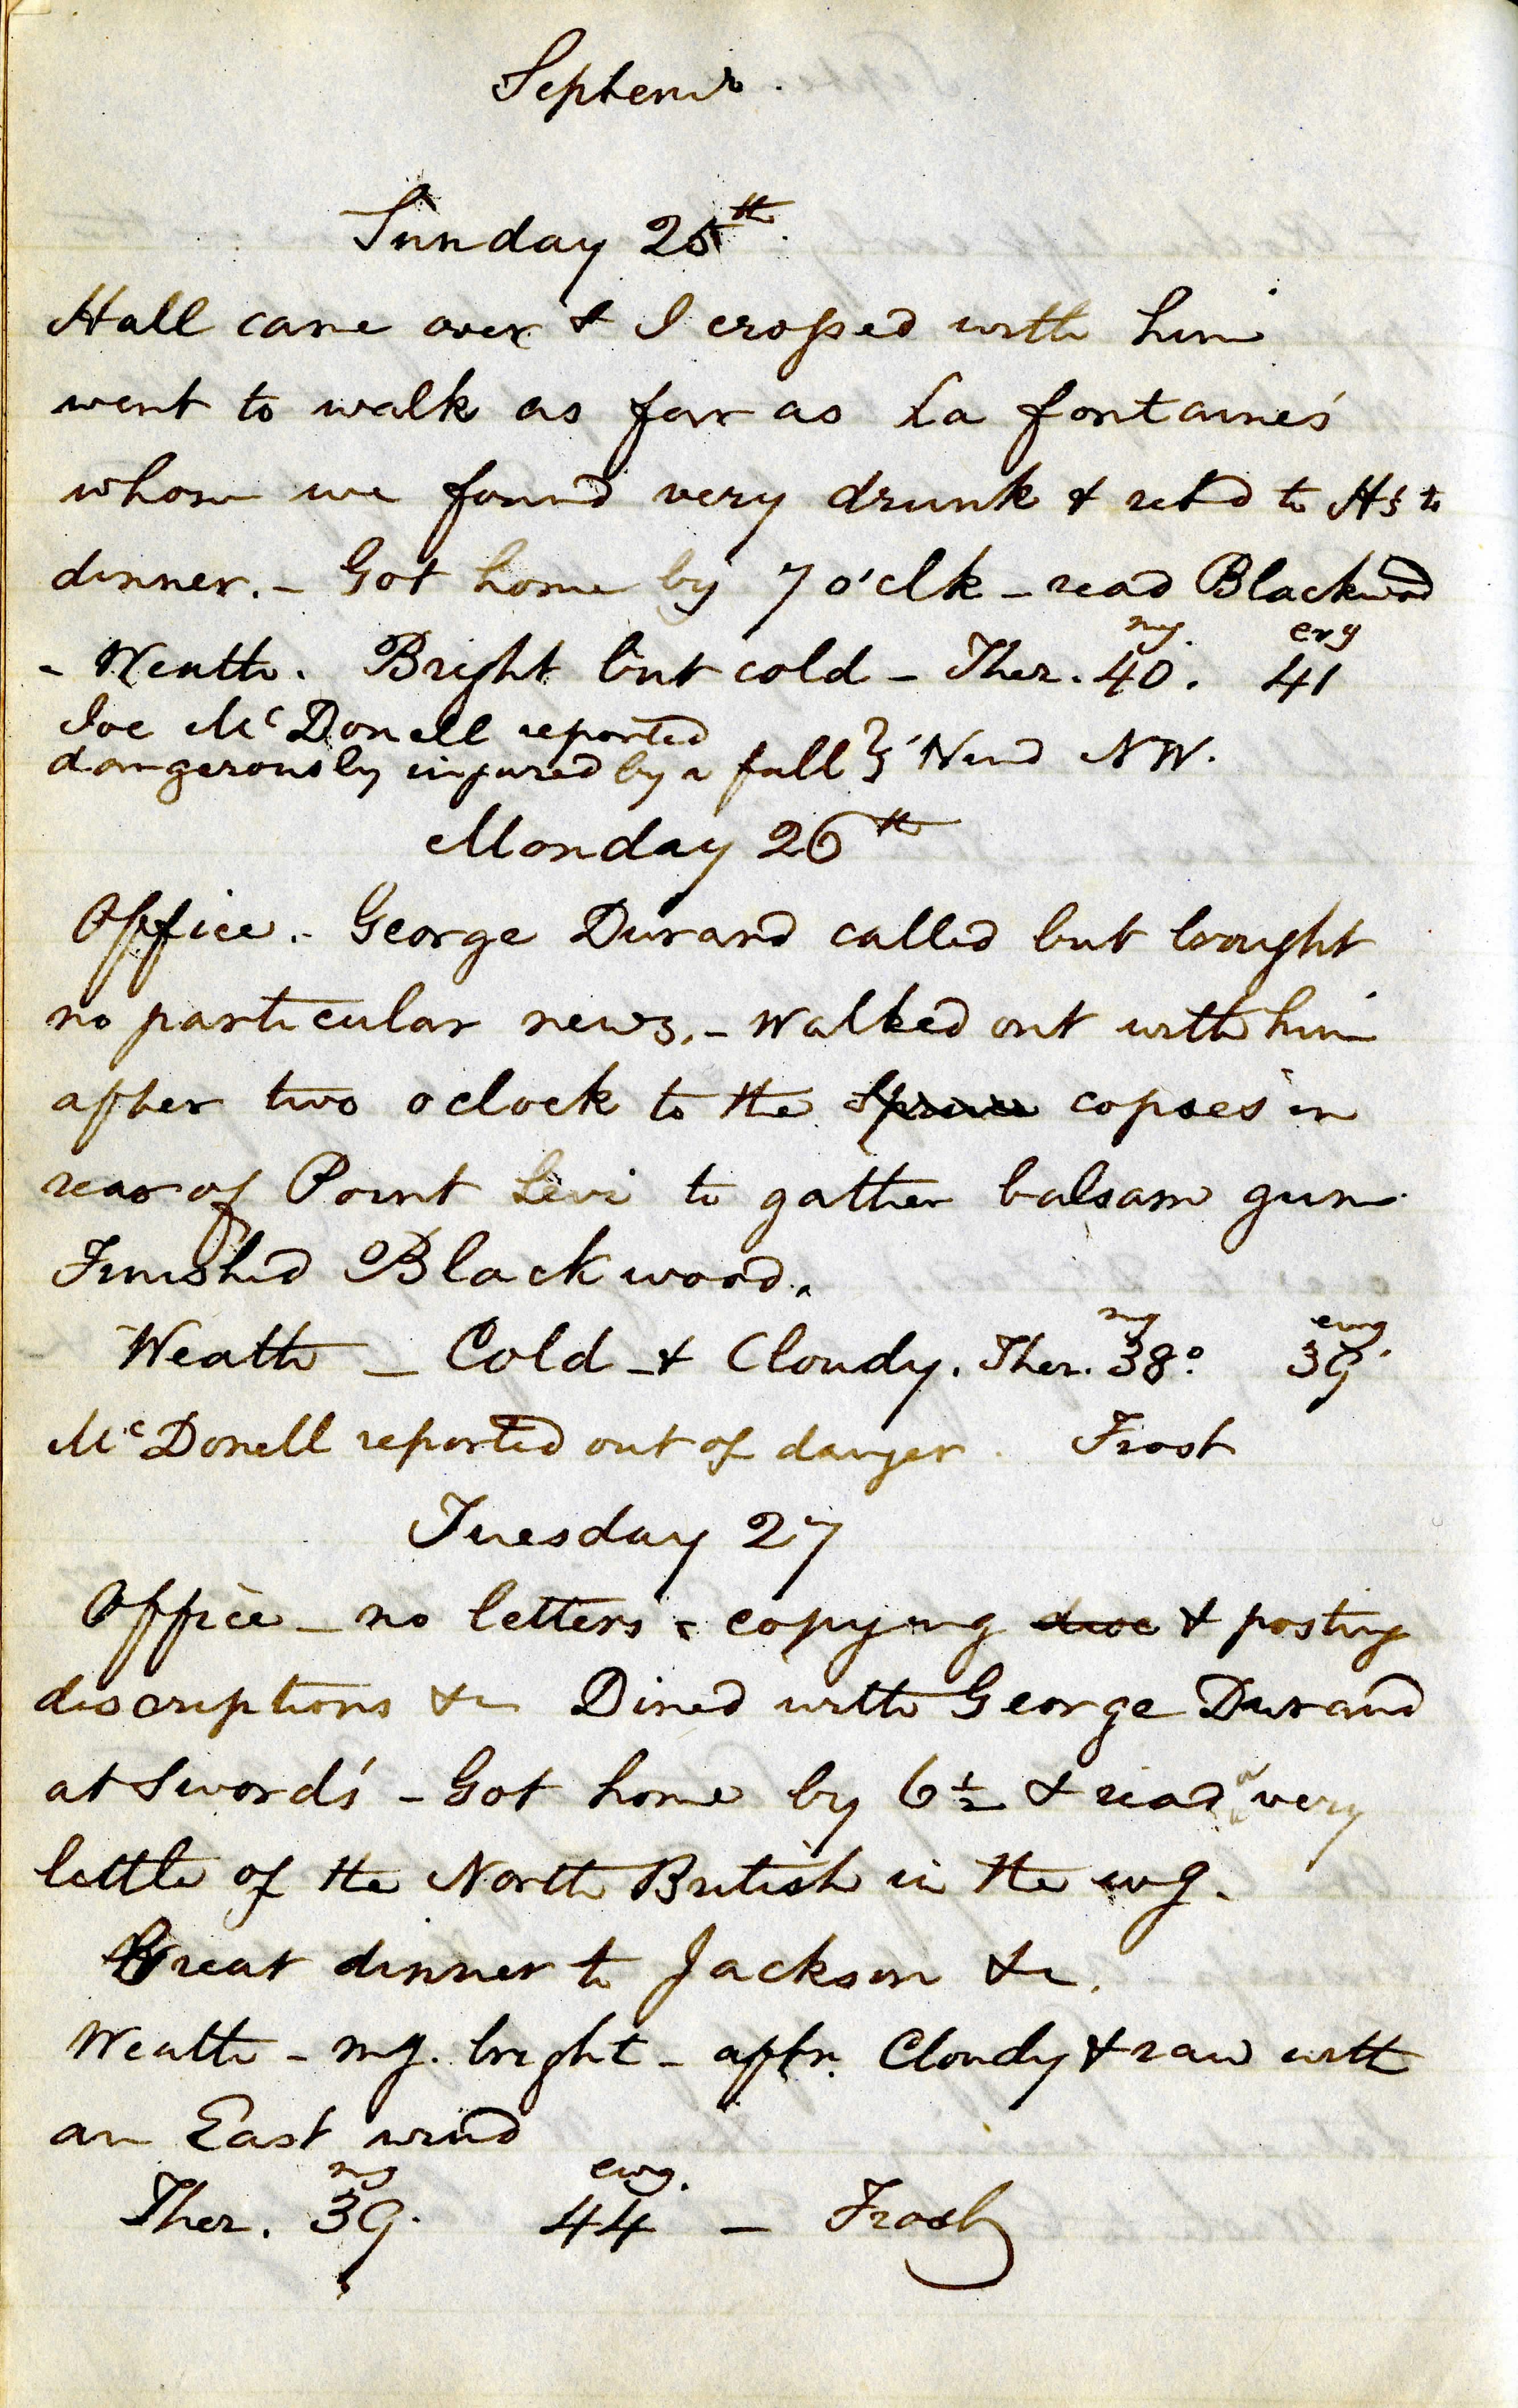 Septemr.
Sunday 25th.
Hall came over & I crossed with him
went to walk as far as La fontaine's
whom we found very drunk & retd to H's to
dinner. - Got home by 7 o'clk - read Blackwood
mg. evg
- Weath. Bright but cold - Ther. 40. 41
Joe McDonell reported
dangerously injured by a fall } Wind NW.
Monday 26th
Office. - George Durand called but brought
no particular news. - Walked out with him
after two oclock to the Spruce copses in
rear of Point Levi to gather balsam gum.
Finished Blackwood.
mg evng
Weath - Cold - & Cloudy. Ther. 38°. 39.
McDonell reported out of danger. Frost
Tuesday 27
Office - no letters - copying & posting
descriptions &c Dined with George Durand
at Sword's - Got home by 6 1/2 & read a very
little of the North British in the evg.
Great dinner to Jackson &c.
Weath - mg. bright - aftn. Cloudy & raw with
an East wind
mg evng.
Ther. 39. 44 - Frosty